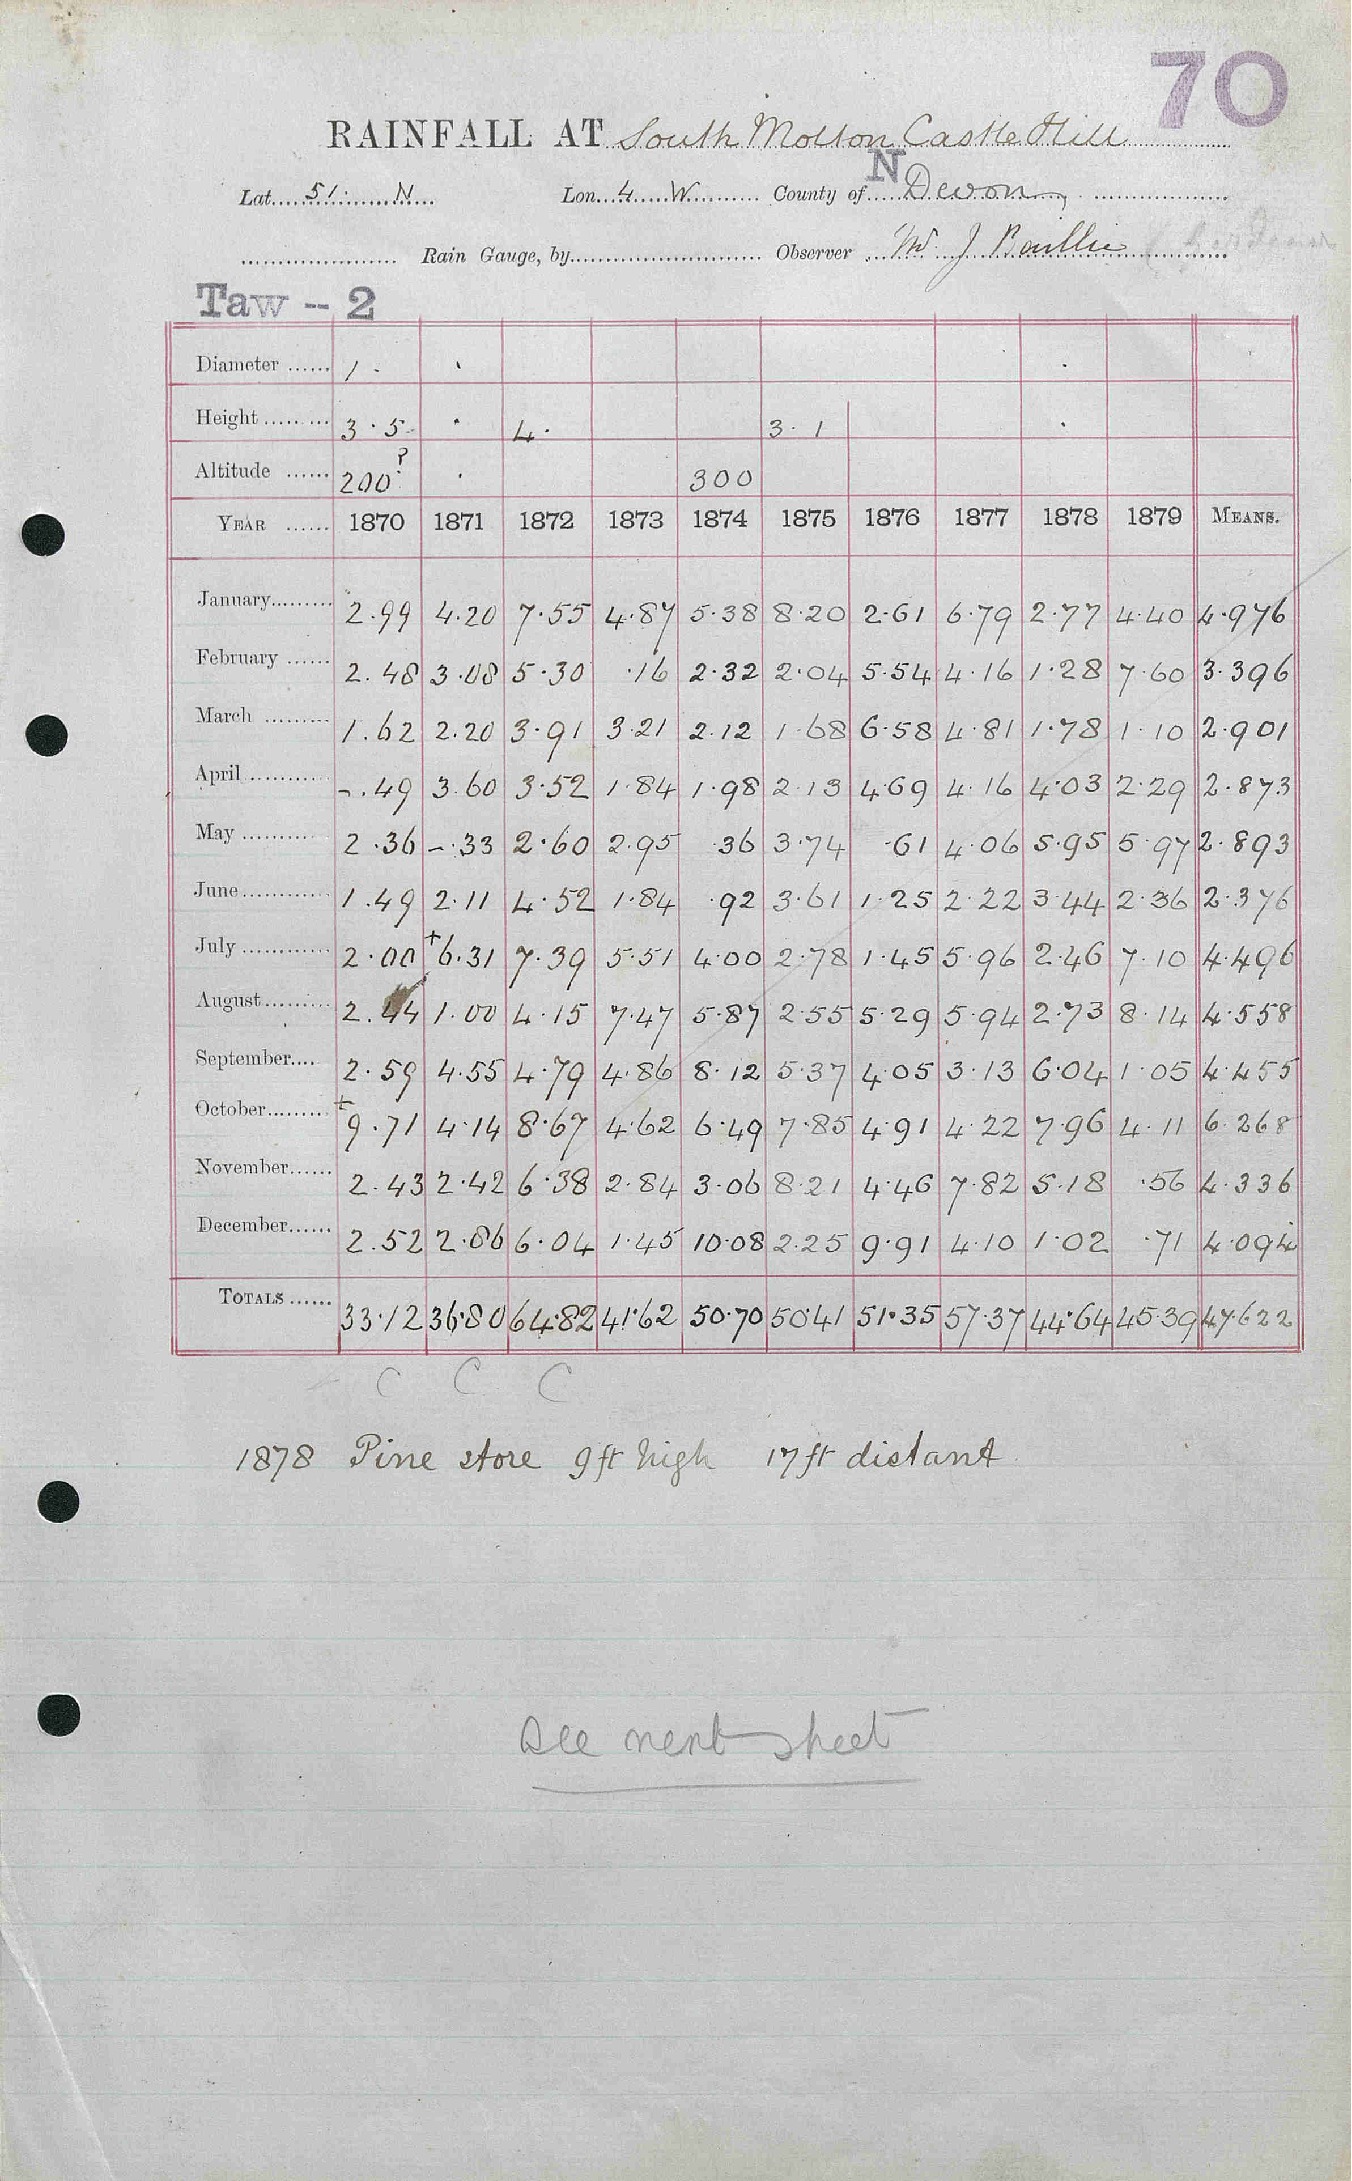 70
RAINFALL AT South Molton Castle Hill
N
Lat. 51. N Lon. 4. W County of Devon
Rain Gauge, by Observer Mr J
Taw -- 2
Diameter 1.
Height 3.5 4. 3.1
Altitude 200? 300
YEAR 1870 1871 1872 1873 1874 1875 1876 1877 1878 1879 MEANS.
January 2.99 4.20 7.55 4.87 5.38 8.20 2.61 6.79 2.77 4.40 4.976
February 2.48 3.08 5.30 .16 2.32 2.04 5.54 4.16 1.28 7.60 3.396
March 1.62 2.20 3.91 3.21 2.12 1.68 6.58 4.81 1.78 1.10 2.901
April -.49 3.60 3.52 1.84 1.98 2.13 4.69 4.16 4.03 2.29 2.873
May 2.36 -.33 2.60 2.95 .36 3.74 .61 4.06 5.95 5.97 2.893
June 1.49 2.11 4.52 1.84 .92 3.61 1.25 2.22 3.44 2.36 2.376
July 2.00 +6.31 7.39 5.51 4.00 2.78 1.45 5.96 2.46 7.10 4.496
August 2.44 1.00 4.15 7.47 5.87 2.55 5.29 5.94 2.73 8.14 4.558
September 2.59 4.55 4.79 4.86 8.12 5.37 4.05 3.13 6.04 1.05 4.455
October +9.71 4.14 8.67 4.62 6.49 7.85 4.91 4.22 7.96 4.11 6.268
November 2.43 2.42 6.38 2.84 3.06 8.21 4.46 7.82 5.18 .56 4.336
December 2.52 2.86 6.04 1.45 10.08 2.25 9.91 4.10 1.02 .71 4.094
TOTALS 33.12 36.80 64.82 41.62 50.70 50.41 51.35 57.37 44.64 45.39 47.622
C C C
1878 Pine store 9ft high 17ft distant
See next sheet